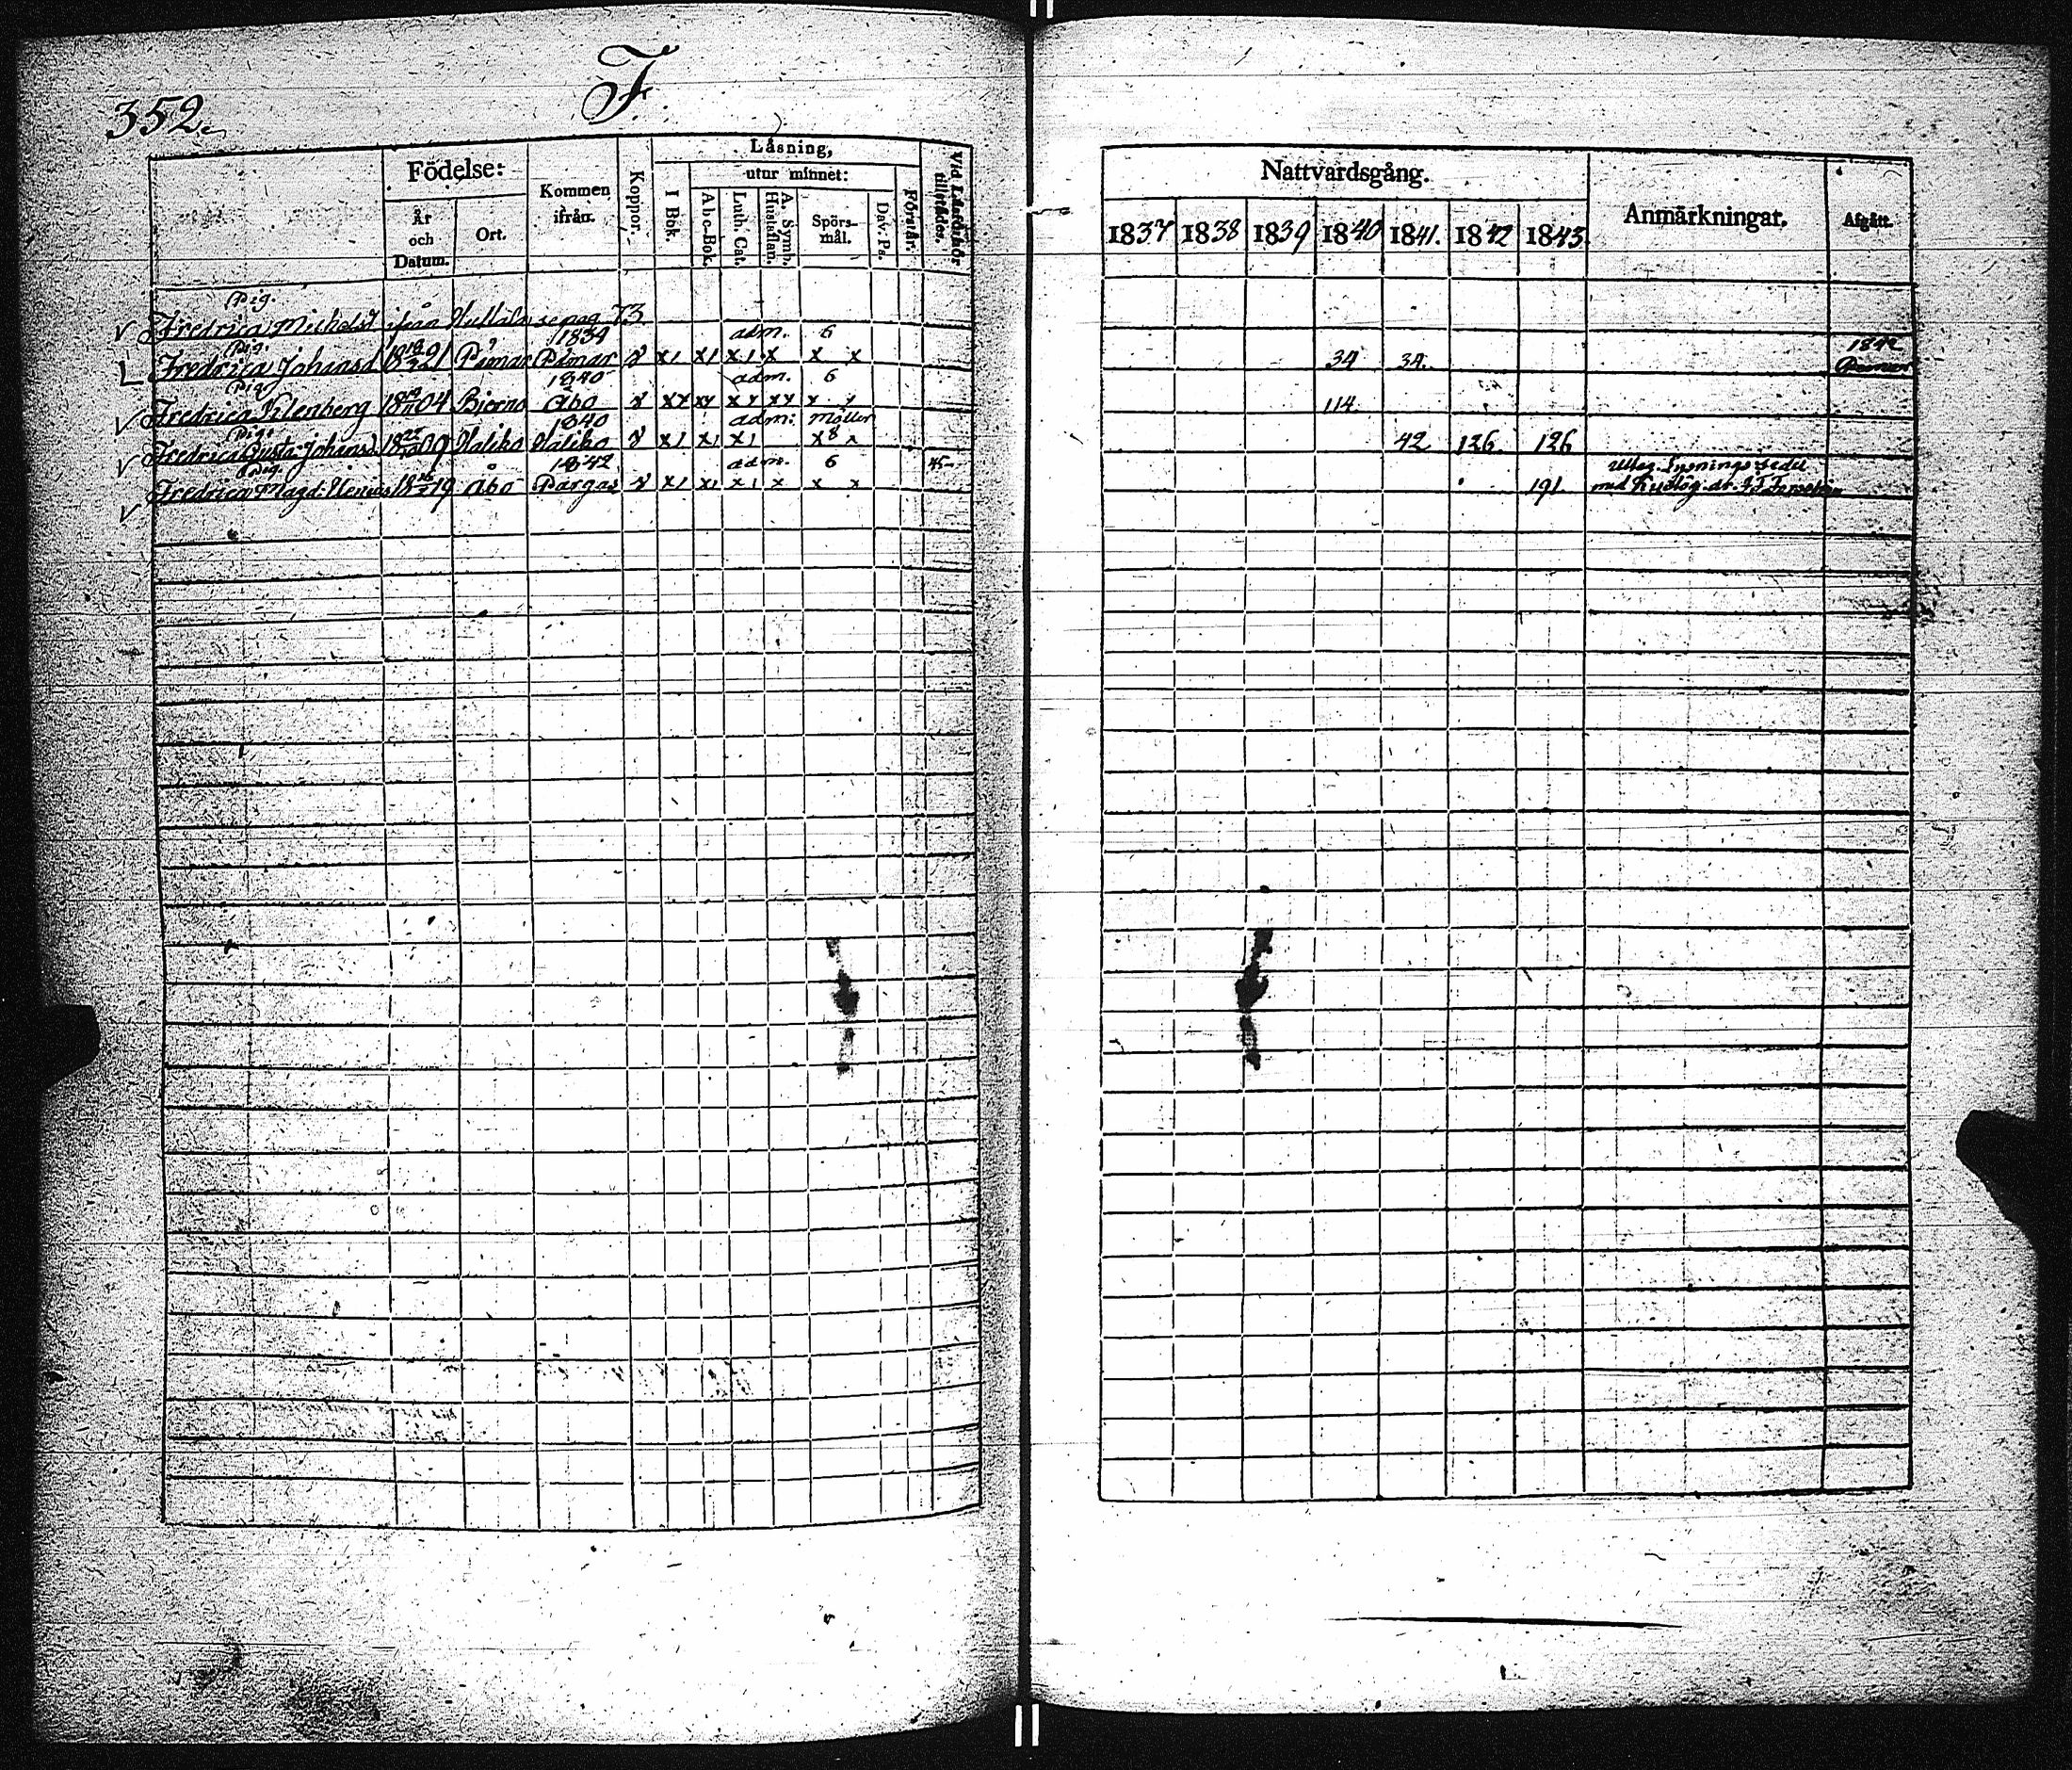 352.
F.
Födelse:
År och Datum.
Ort.
Kommen ifrån.
Koppor.
Läsning,
utur minnet:
I Bok.
Abc-Bok.
Luth. Cat.
A. Symb. Hustaflan.
Spörs-mål.
Dav. Ps.
Förstår.
Vid Läseförhör tillstädes.
Nattvardsgång.
1837 1838 1839 1840 1841. 1842 1843.
Anmärkningar.
Afgått.
Pig.
Fredrica Michelsd ifrån se pag. 73
Pig. 1839 adm. 6 1842
Fredrica Johansd 18 18/3 21 Pemar Pemar x x1 x1 x1 x x x 34 34. Pemar
Pig 1840 adm. 6
Fredrica Klenberg 04 Bjerno Åbo x xx xx xx xx x x 114
Pig. 1840 adm: Möller
Fredrica Gusta Johansd. 09 Haliko Haliko x x1 x1 x1 x8 42 126. 126
Pig. 1842 adm. 6 45 Uttag. Lysnings sedel
Fredrica Magd: 19 Åbo Pargas x x1 x1 x1 x x x 191. med